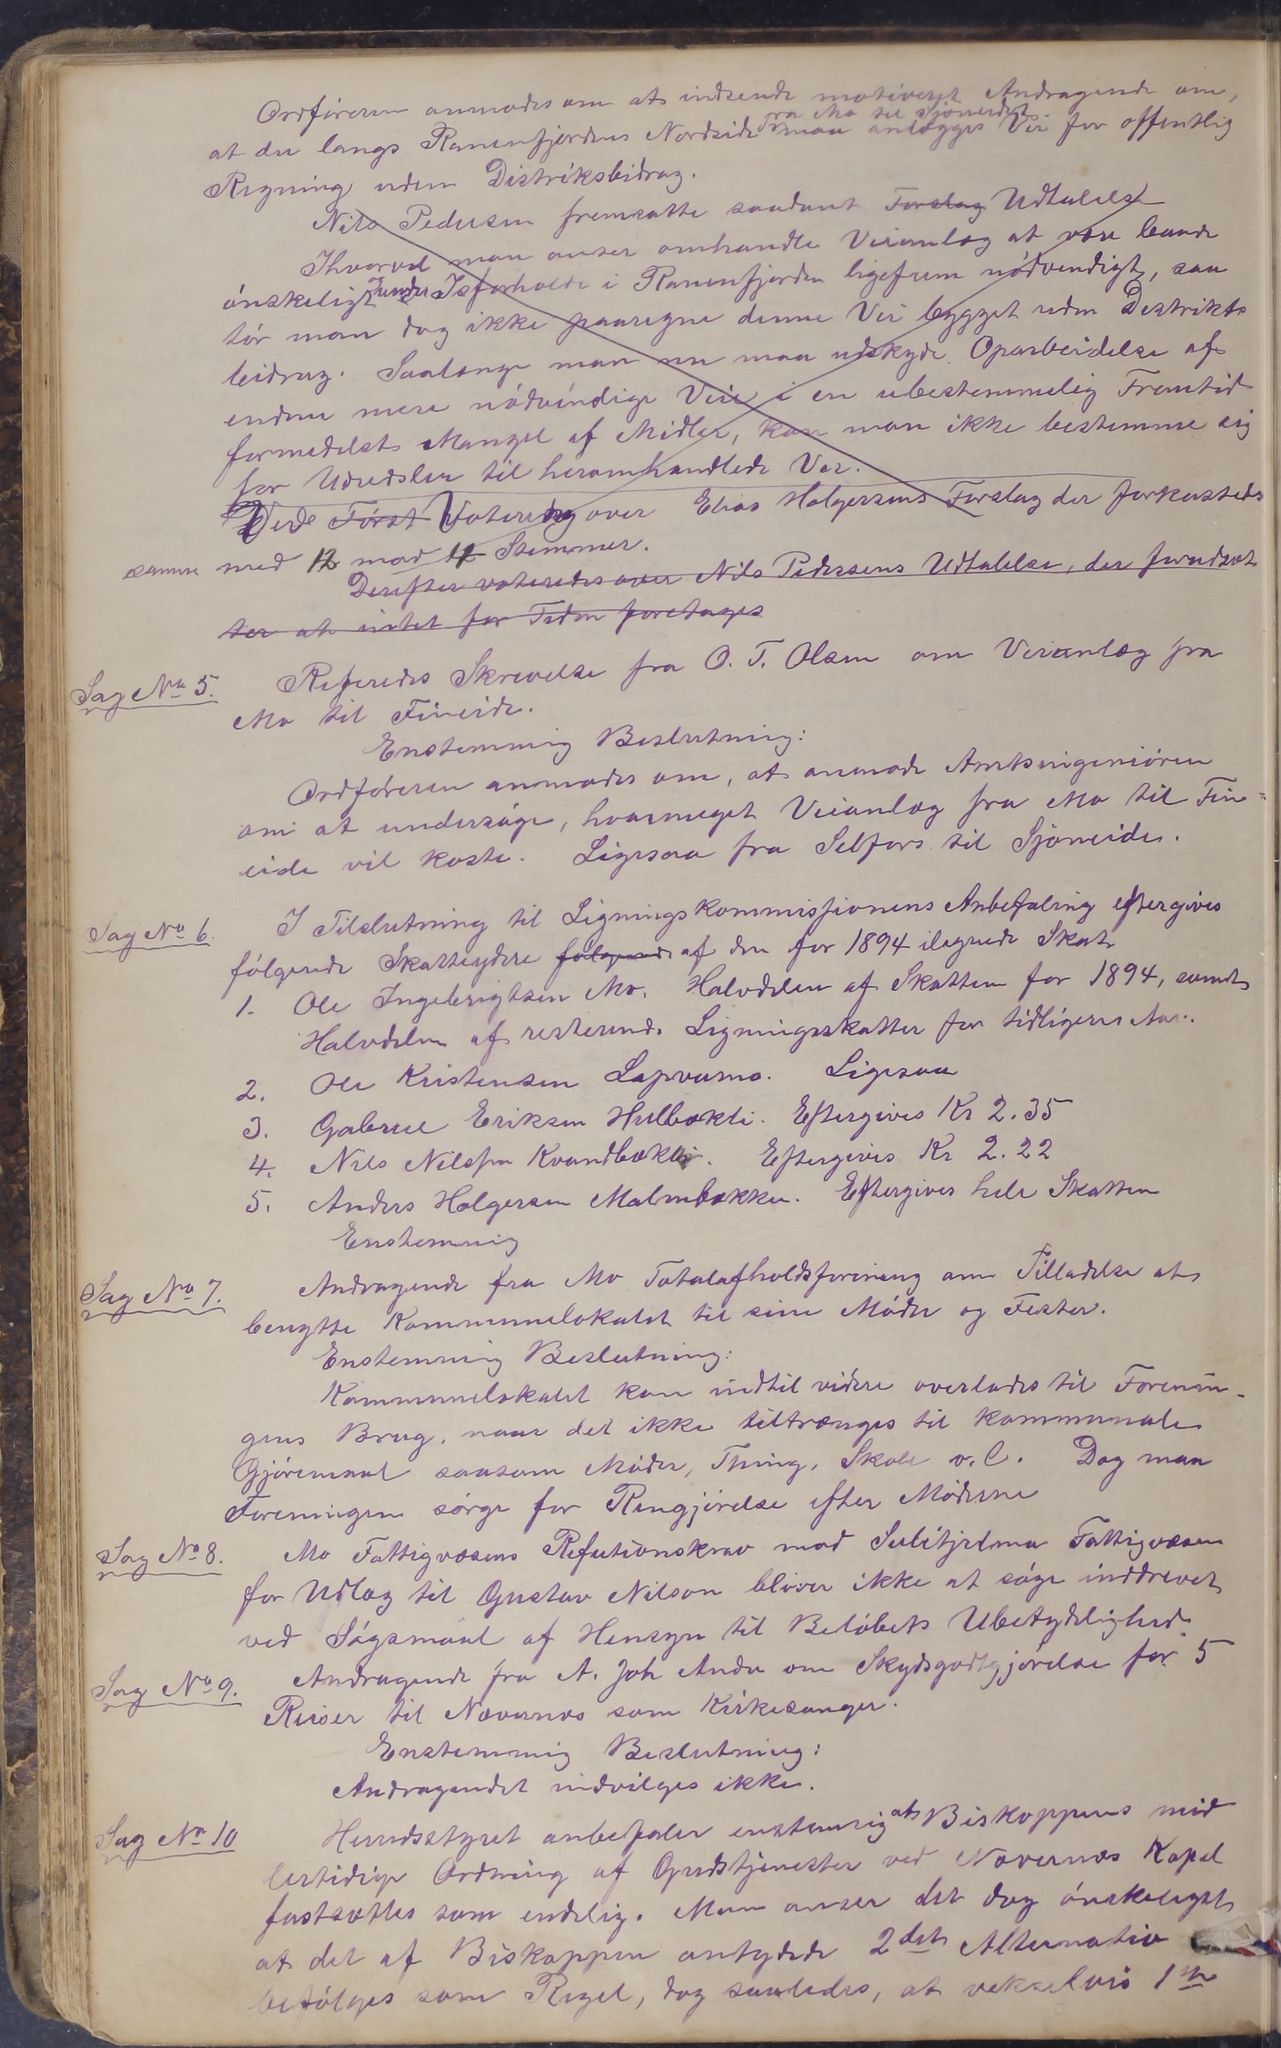 Ordføreren anmodes om at indsende motiveret Andragende om,
at der langs Ranenfjordens Nordside fra Mo til Sjoneidet maa anlægges Vei for offentlig
Regning uden Distriktsbidrag.
Nils Pedersen fremsatte saadant Forslag Udtalelse
Ihvorvel man anser omhandlede Veianlæg at være baade
ønskeligt under Isforholde i Ranenfjorden ligefrem nødvendigt, saa
tør man dog ikke paaregne denne Vei bygget uden Distrikts
bidrag. Saalænge man nu maa udskyde Oparbeidelse af
endnu mere nødvendige Veie i en ubestemmelig Fremtid
formedelst Mangel af Midler, kan man ikke bestemme sig
for Udredslen til heromhandlede Vei.
Vedr Først Votering over Elias Holgersens Forslag der forkastedes
samme med 12 mod 11 Stemmer.
Derefter voteredes over Nils Pedersens Udtalelse, der forudsæt
ter at intet for Tiden foretages
Sag No 5. Referedes Skrivelse fra O. T. Olsen om Veianlæg fra
Mo til Fineide.
Enstemmig Beslutning:
Ordføreren anmodes om, at anmode Amtsingeniøren
om at undersøge, hvormeget Veianlæg fra Mo til Fin=
eide vil koste. Ligesaa fra Selfors til Sjoneide.
Sag No 6. I Tilslutning til Ligningskommissionens Anbefaling eftergives
følgende Skatteydere følgende af den for 1894 ilignede Skat
1. Ole Ingebrigtsen Mo. Halvdelen af Skatten for 1894, samt
Halvdelen af resterende Ligningsskatter for tidligere Aar.
2. Ole Kristensen Lapvamo. Ligesaa
3. Gabriel Eriksen Hulbækli. Eftergives Kr 2.35
4. Nils Nilsen Kvandbækli. Eftergives Kr 2.22
5. Anders Holgersen Malmbækken. Eftergives hele Skatten
Enstemmig
Sag No 7. Andragende fra Mo Totalafholdsforening om Tilladelse at
benytte Kommunelokalet til sine Møder og Fester.
Enstemmig Beslutning:
Kommunelokalet kan indtil videre overlades til Forenin-
gens Brug, naar det ikke tiltrænges til kommunale
Gjøremaal saasom Møder, Thing, Skole o. l. Dog maa
Foreningen sørge for Rengjørelse efter Møderne
Sag No 8. Mo Fattigvæsens Refutionskrav mod Sulitjelma Fattigvæsen
for Udlæg til Gustav Nilson bliver ikke at søge inddrevet
ved Søgsmaal af Hensyn til Beløbets Ubetydelighed.
Sag No 9. Andragende fra A. Joh Anda om Skydsgodtgjørelse for 5
Reiser til Nævernes som Kirkesanger.
Enstemmig Beslutning:
Andragendet indvilges ikke.
Sag No 10 Herredsstyret anbefaler enstemig at Biskoppens mid
lertidige Ordning af Gudstjenester ved Nævernes Kapel
fastsættes som endelig. Man anser det dog ønskeligt
at det af Biskoppen antydede 2det Alternativ
befølges som Regel, dog saaledes, at vekselvis 1ste